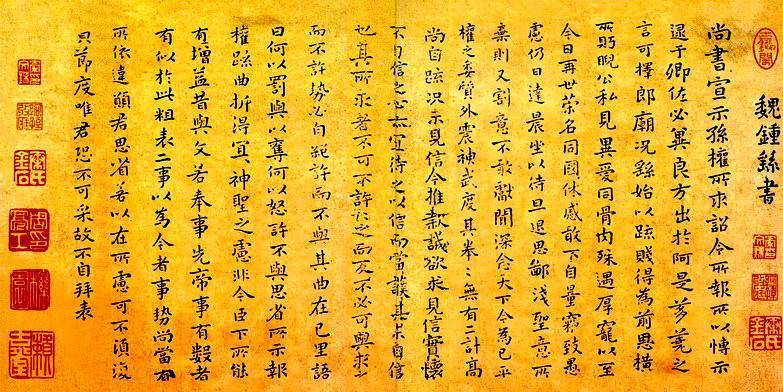 魏鍾繇書
尚書宣示孫權所求詔令所報所以博示
逮于卿佐必冀良方出於阿是芻蕘之
言可擇郎廟況繇始以疏賤得為前恩橫
所眄睨公私見異愛同骨肉殊遇厚寵以至
今日再世榮名同國休慼敢不自量竊致愚
慮仍日達晨坐以待旦退思鄙淺聖意所
棄則又割意不敢獻聞深念天下今為已平
權之委質外震神武度其拳〻無有二計高
尚自疏況未見信今推款誠欲求見信實懷
不自信之心亦宜待之以信而當護其未自信
也其所求者不可不許許之而反不必可與求之
而不許勢必自絕許而不與其曲在己里語
曰何以罰與以奪何以怒許不與思省所示報
權疏曲折得宜〻神聖之慮非今臣下所能
有增益昔與文若奉事先帝事有數者
有似於此粗表二事以為今者事勢尚當有
所依違願君思省若以在所慮可不須復
皃節度唯君恐不可采故不自拜表